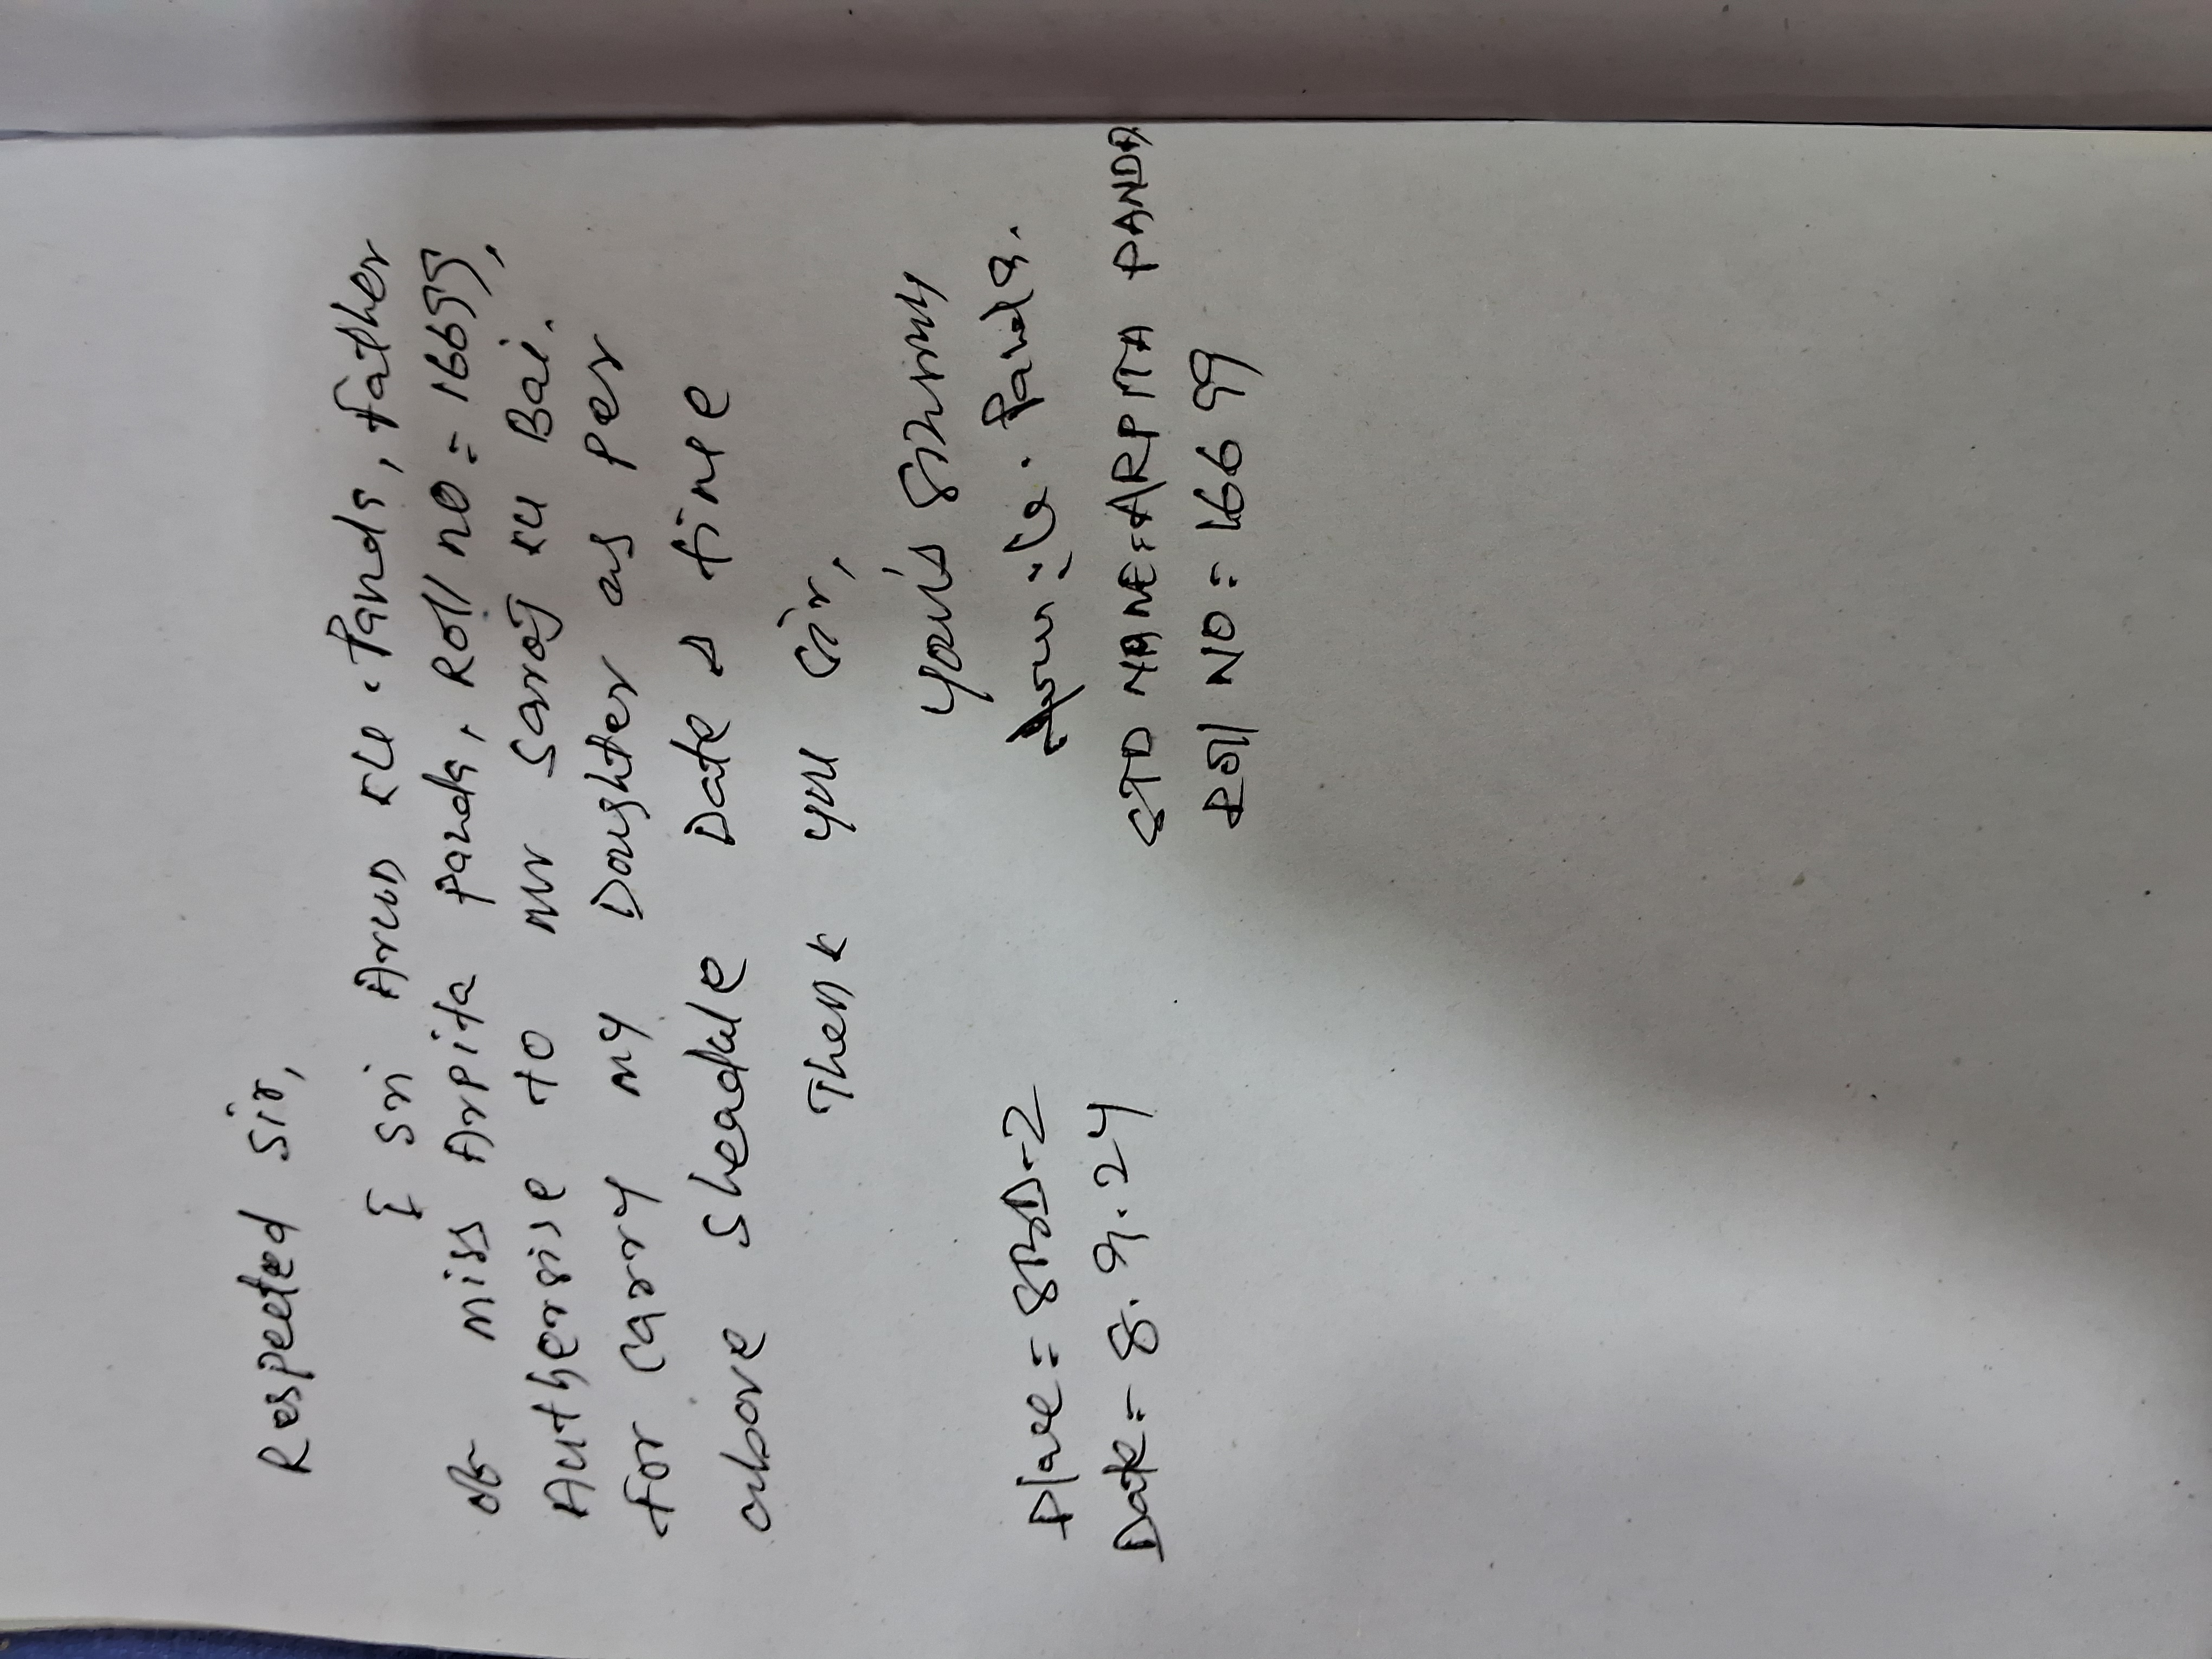 Respected Sir,
I Sri Arun Ku. Panda, father
of miss Arpita panda, Roll no = 16699,
Authersise to mr Saroj Ku Bai.
for carry my Doughter as per
above sheadule Date & time
Thenk you Sir,
Place = 
Date = 8.9.24
your's
Arun Ku. Panda.
STD NAME = ARPITA PANDA
Roll NO = 16699